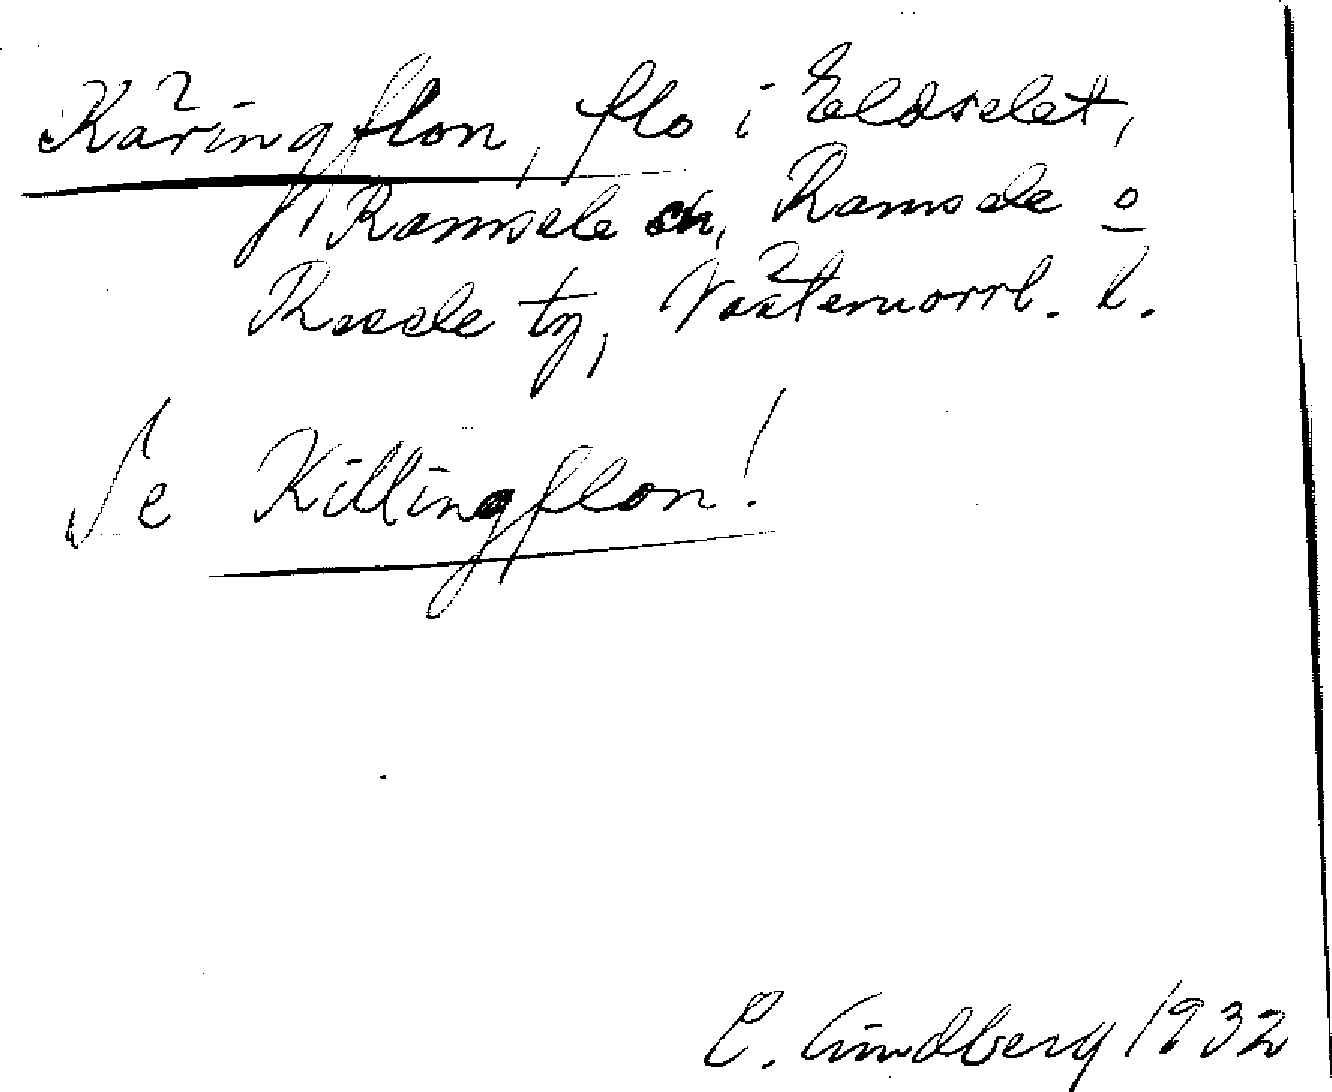 Käringflon, flo i Eldselet,
Ramsele sn, Ramsele o
Resele tg, Västernorrl. l.
Se Killingflon!
C. Lindberg 1932